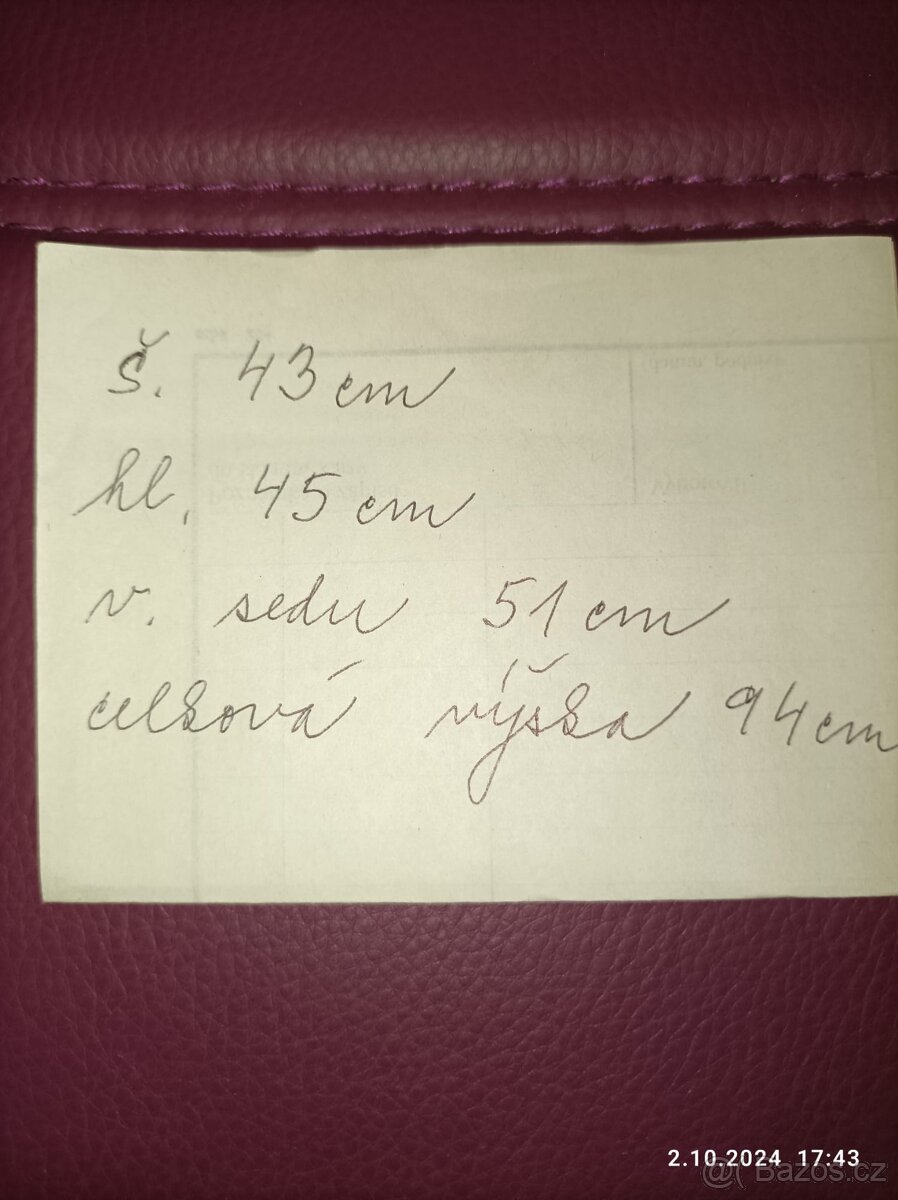 š. 43 cm
hl. 45 cm
v. sedu 51 cm
celková výška 94 cm
2.10.2024 17:43
@( Bazoš.cz